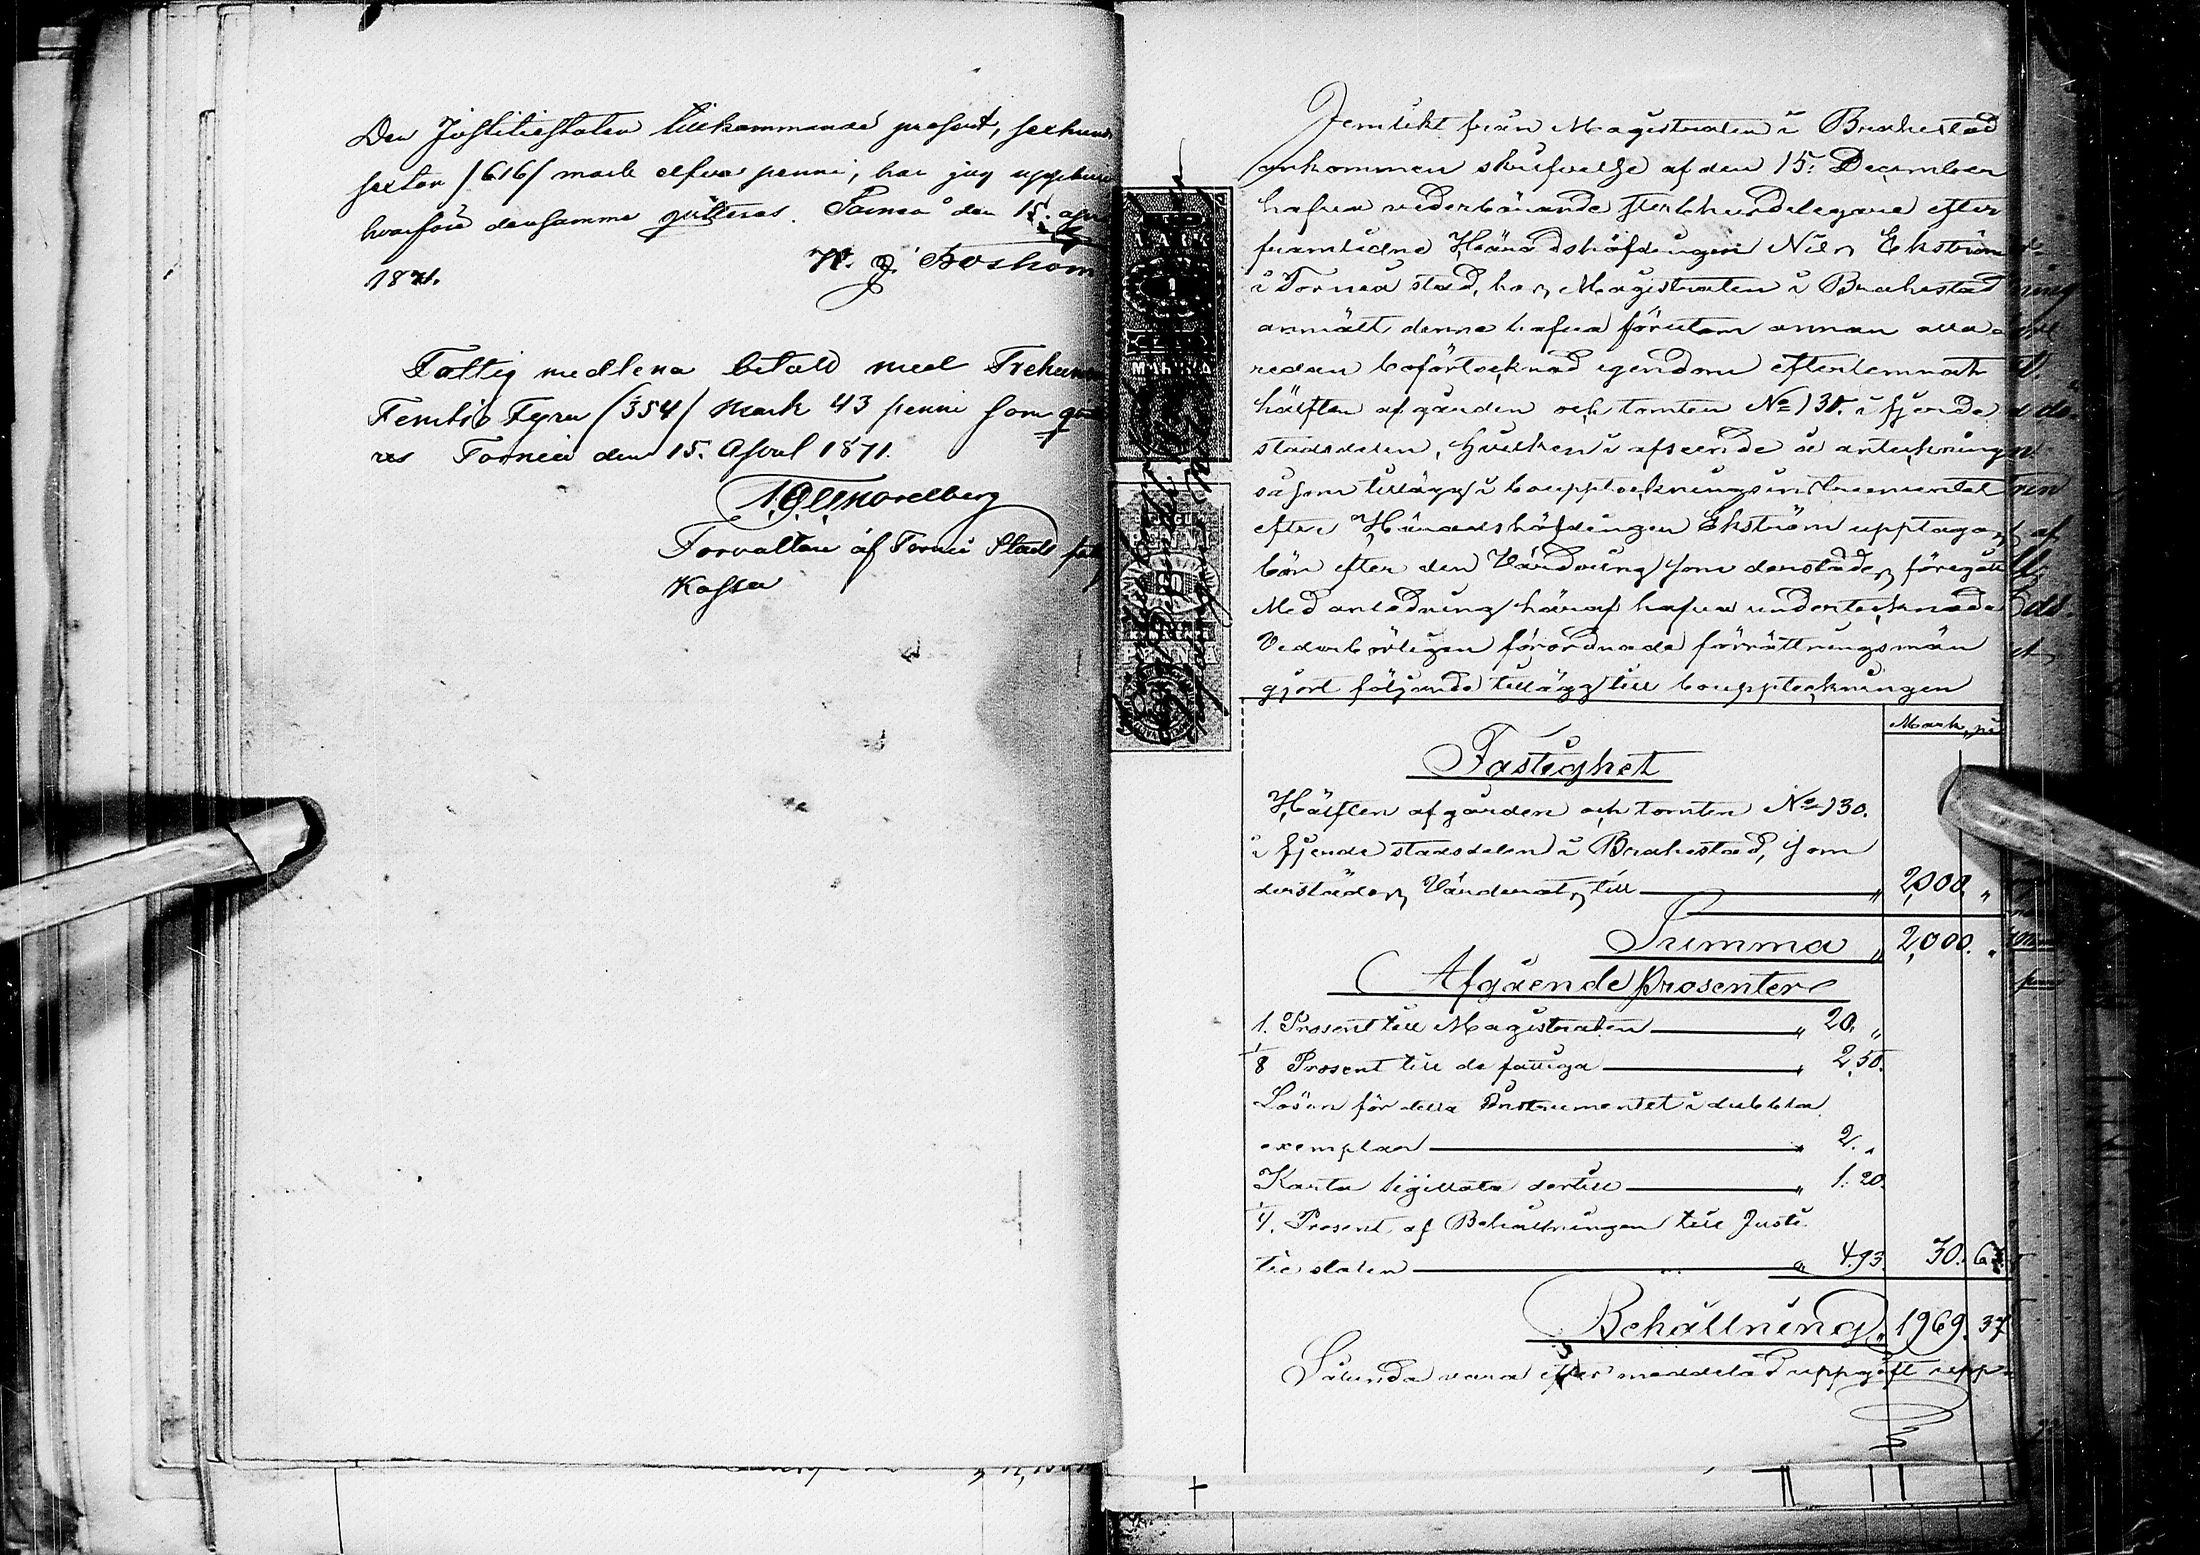 Den Justitiestaten tillkommande prosent, sexhun
sexton /616/ mark elfva penni, har jag uppburi
hvarföre densamma qvitteras. Torneå den 15. apr
1871.
W. J. Boshom
Fattig medlena betald med Trehun
Femtio Fyra /354/ Mark 43 penni som qvi
res Torneå den 15. April 1871.
Nordberg
Forvaltare af Torneå Stads fat
Kassa
Jemlikt från Magistraten i Brahestad
ankommen skrifvelse af den 15. December
hafva vederbörande sterbhusdelegare efter
framlidne Häradshöfdingen Nils Ekström
i Torneå stad, hos Magistraten i Brahestad
anmält denne hafva förutom annan alla
redan boförtecknad egendom efterlemnat
hälften af gården och tomten No 130. i fjerde
stadsdelen, hvilken i afseende å anteckning
såsom tillägg i bouppteckningsinstrumentet
efter Häradshöfdingen Ekström upptagas
bör efter den Värdering som derstädes föregått
Med anledning häraf hafva undertecknade
Vederbörligen förordnade förrättningsmän
gjort följande tillägg till bouppteckningen
Mark pi
Fastighet
Hälften af gården och tomten No 130.
i fjerde stadsdelen i Brahestad, som
derstädes Värderats till " 2,000 "
Summa " 2,000. "
Afgående prosenter
1. Prosent till Magistraten " 20. "
1/8 Prosent till de fattiga " 2,50.
Lösen för detta Instrumentet i dubbla
exemplar " 2. "
Karta Sigillata dertill " 1. 20.
1/4. Prosent af Behållningen till Justi
tie staten " 4.93. 30. 63
Behållning " 1969. 37
Sålunda vara efter meddelad uppgift upp